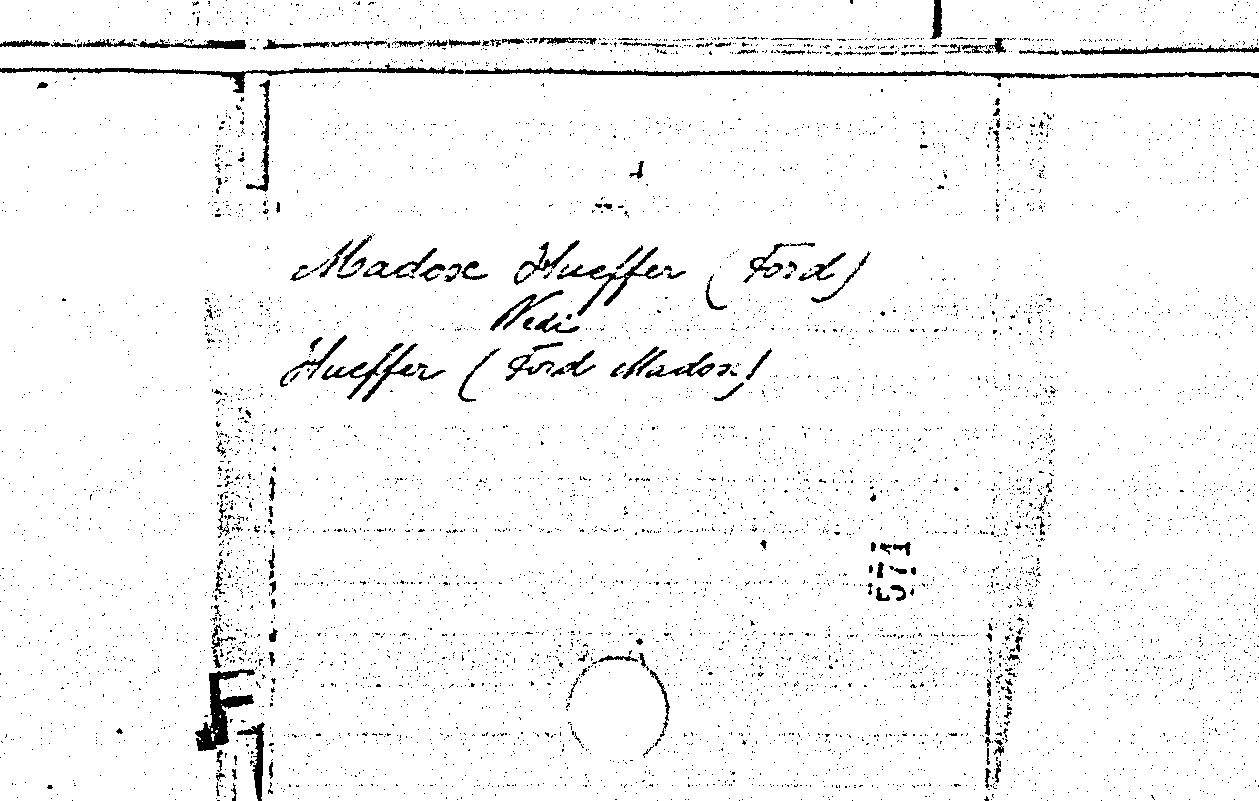 Madox Hueffer (Ford)
Vedi
Hueffer (Ford Madox)
571
F